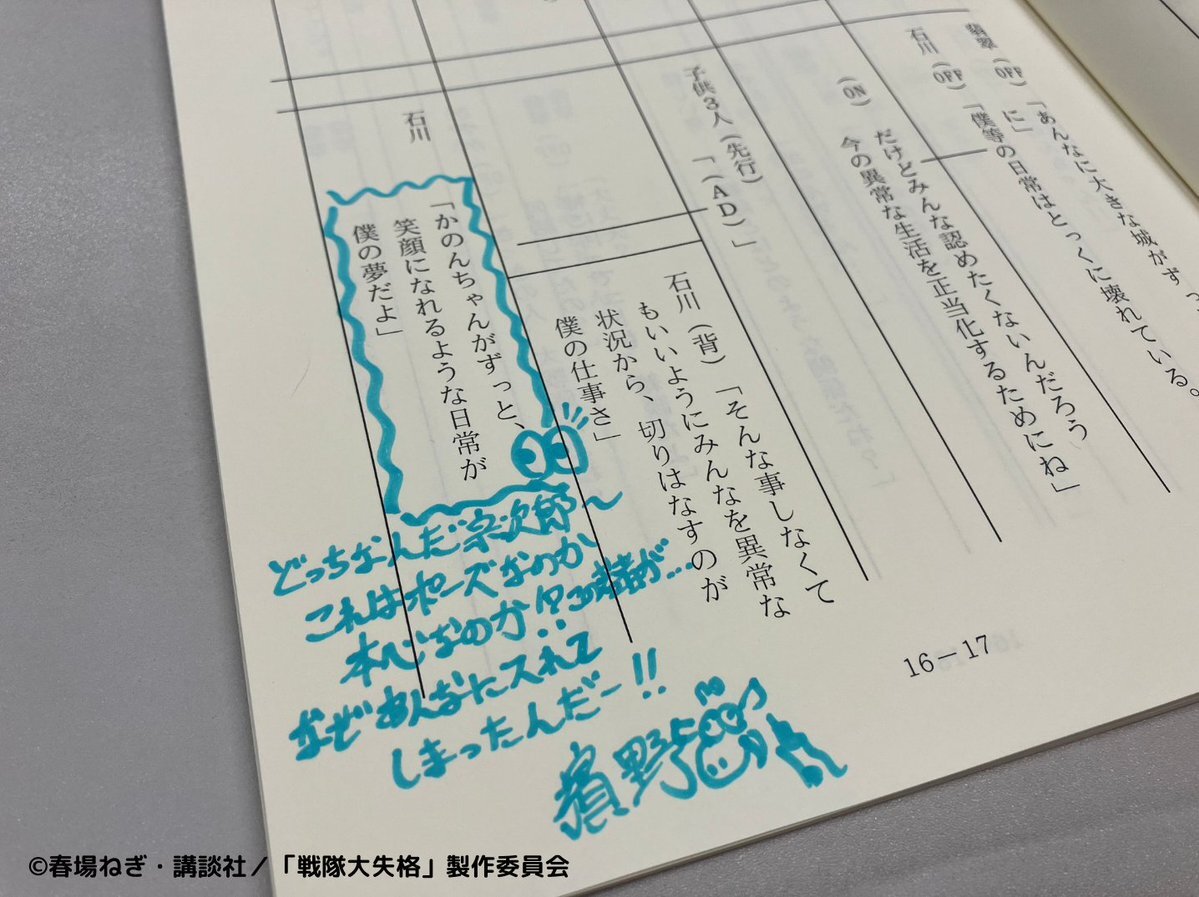 翡翠(OFF)「あんなに大きな城がずっ
に」
石川(OFF)「僕等の日常はとっくに壊れている。
(ON) だけどみんな認めたくないんだろう
今の異常な生活を正当化するためにね」
子供3人(先行)「(AD)」
石川(背)「そんな事しなくて
もいいようにみんなを異常な
状況から、切りはなすのが
僕の仕事さ」
石川
「かのんちゃんがずっと、
笑顔になれるような日常が
僕の夢だよ」
どっちなんだ宗次郎〜
これはポーズなのか
本心なのか!?
が…
なぜあんなにスれて
しまったんだー!!
濱野
16-17
©春場ねぎ・講談社/「戦隊大失格」製作委員会